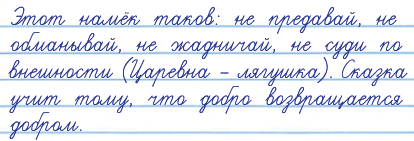 Этот намёк таков: не предавай, не
обманывай, не жадничай, не суди по
внешности (Царевна - лягушка). Сказка
учит тому, что добро возвращается
добром.